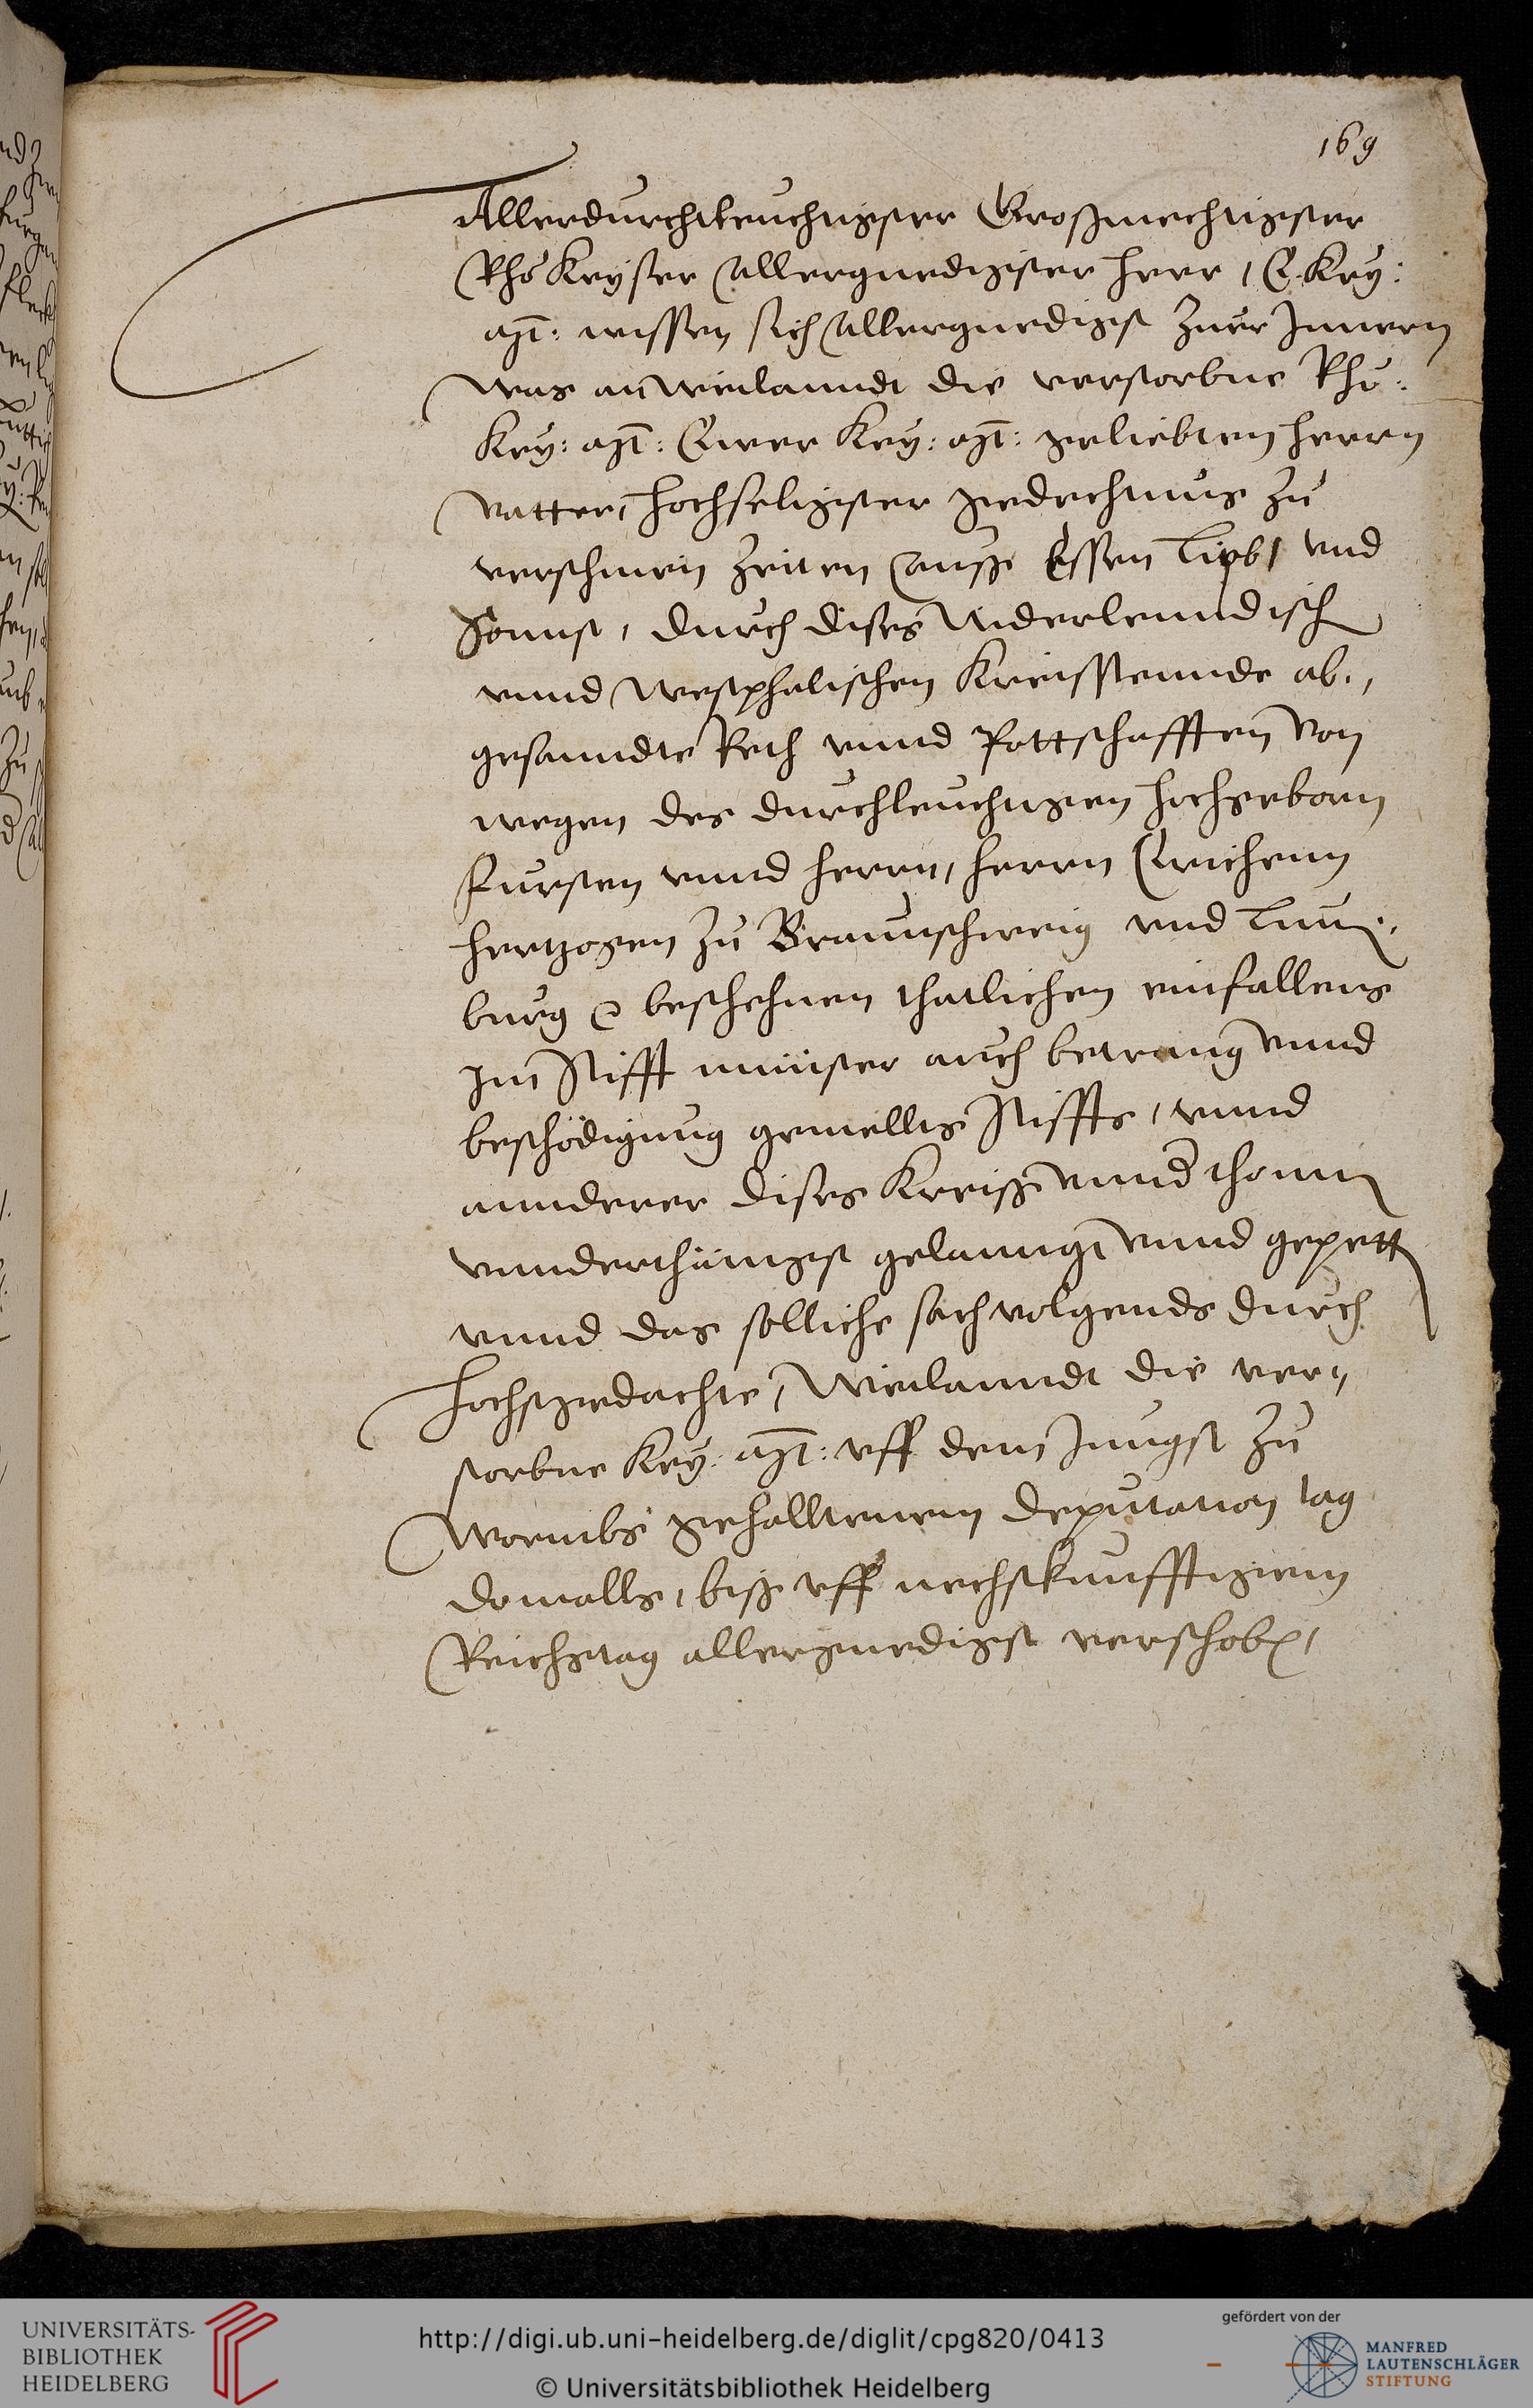 169
Allerdurchleuchtigster Großmechtigster
Rhö Keyser Allergnedigister Herr, E. Key:
Mt: wissen sich Allergnedigist Zuer Innern
was an Weilanndt die verstorbne Rhö:
Key: Mt: Ewer Key: Mt: geliebten Herrn
Vatter, Hochseligister gedechtnus Zu
verschinen Zeiten Auß Essen Lipb, vnd
Sonnst, durch dises Niderlenndisch
vnnd Westphelischen Kreissstennde ab.,
gesanndte Reth vnnd Pottschafften Von
wegen des durchleuchtigen Hochgeborn
Fursten vnnd Herrn, Herrn Erichenn
Hertzogen Zu Braunschweig vnd Lun.
burg &c beschehnen thatlichen einfallens
Im Stifft münster auch betrang vnnd
beschödigung gemelts Stiffts, vnnd
annderer dises Kreiß vnnd thonn
vnnderthänigst gelanngt vnnd gepett
vnnd das solliche sach volgends durch
Hochstgedachte, Weilanndt die ver,
storbne Key: Mt: vff dem Jungst Zu
Wormbs gehalltenem Deputation tag
domalls, biß vff nechstkunfftigem
Reichstag allergnedigst verschoben,
UNIVERSITÄTS-
BIBLIOTHEK
HEIDELBERG
http://digi.ub.uni-heidelberg.de/diglit/cpg820/0413
© Universitätsbibliothek Heidelberg
gefördert von der
MANFRED
LAUTENSCHLÄGER
STIFTUNG